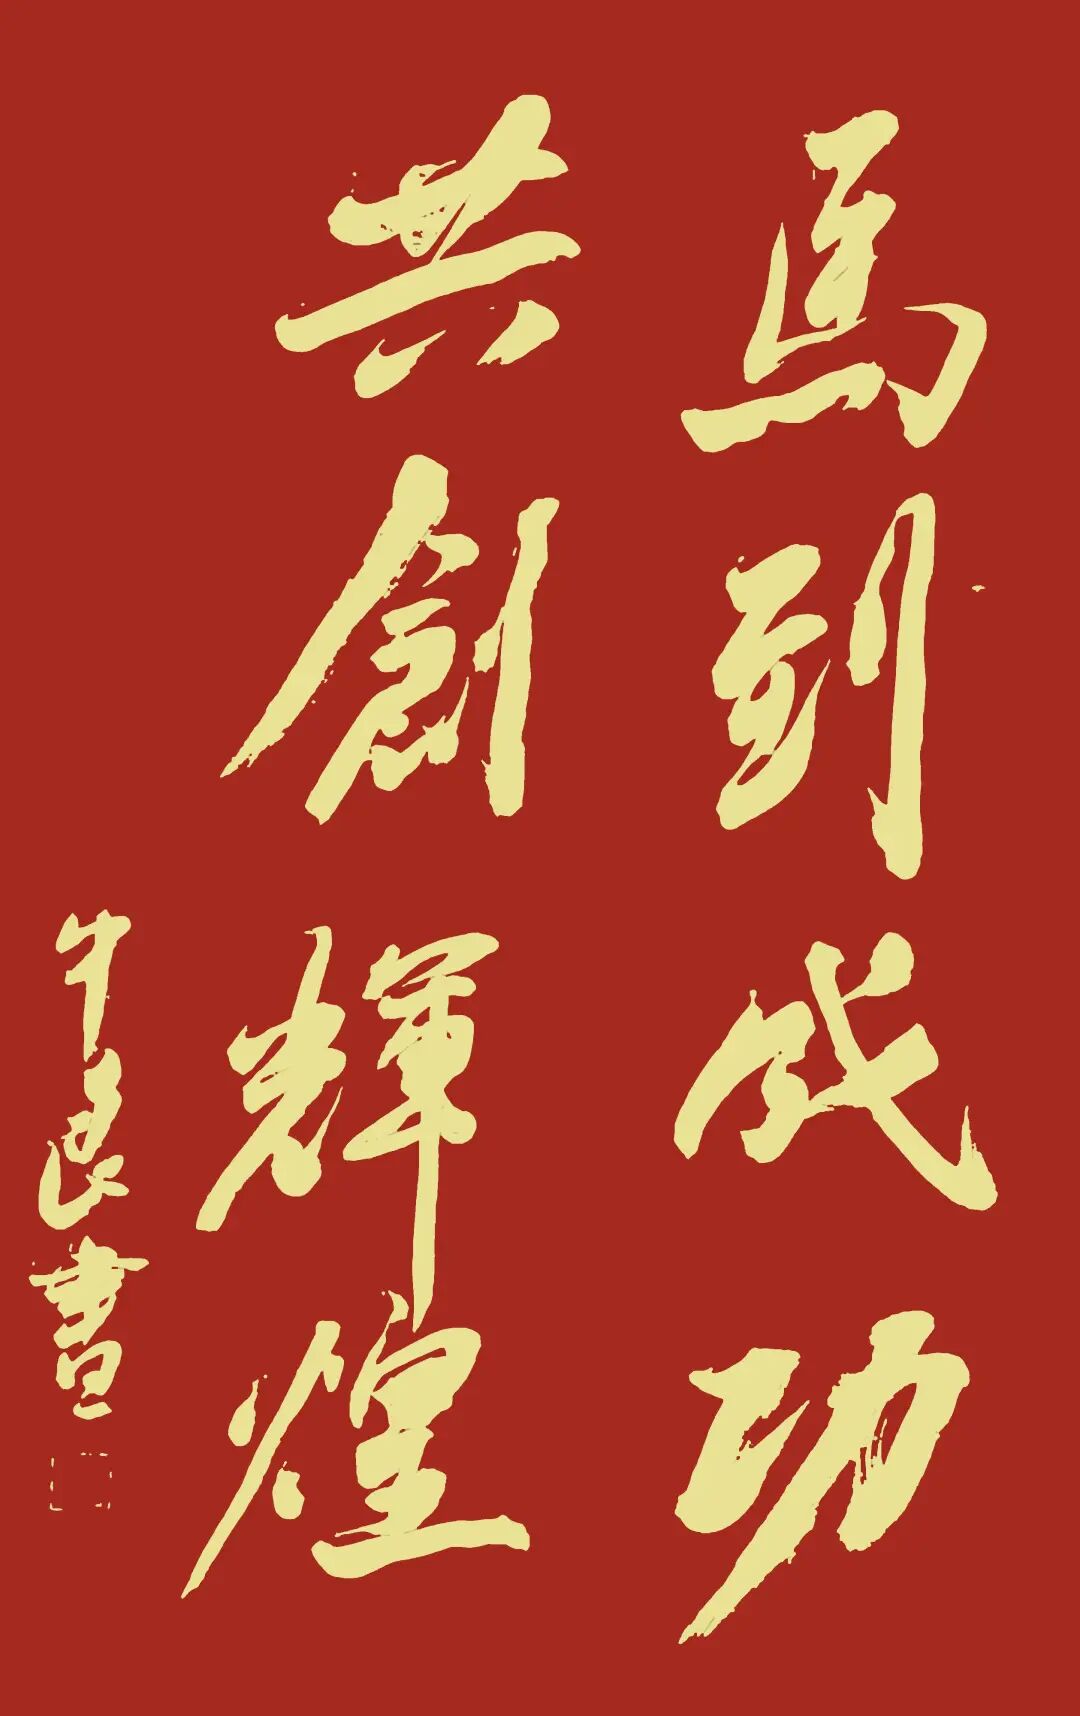 馬到成功
共創輝煌
牛良書